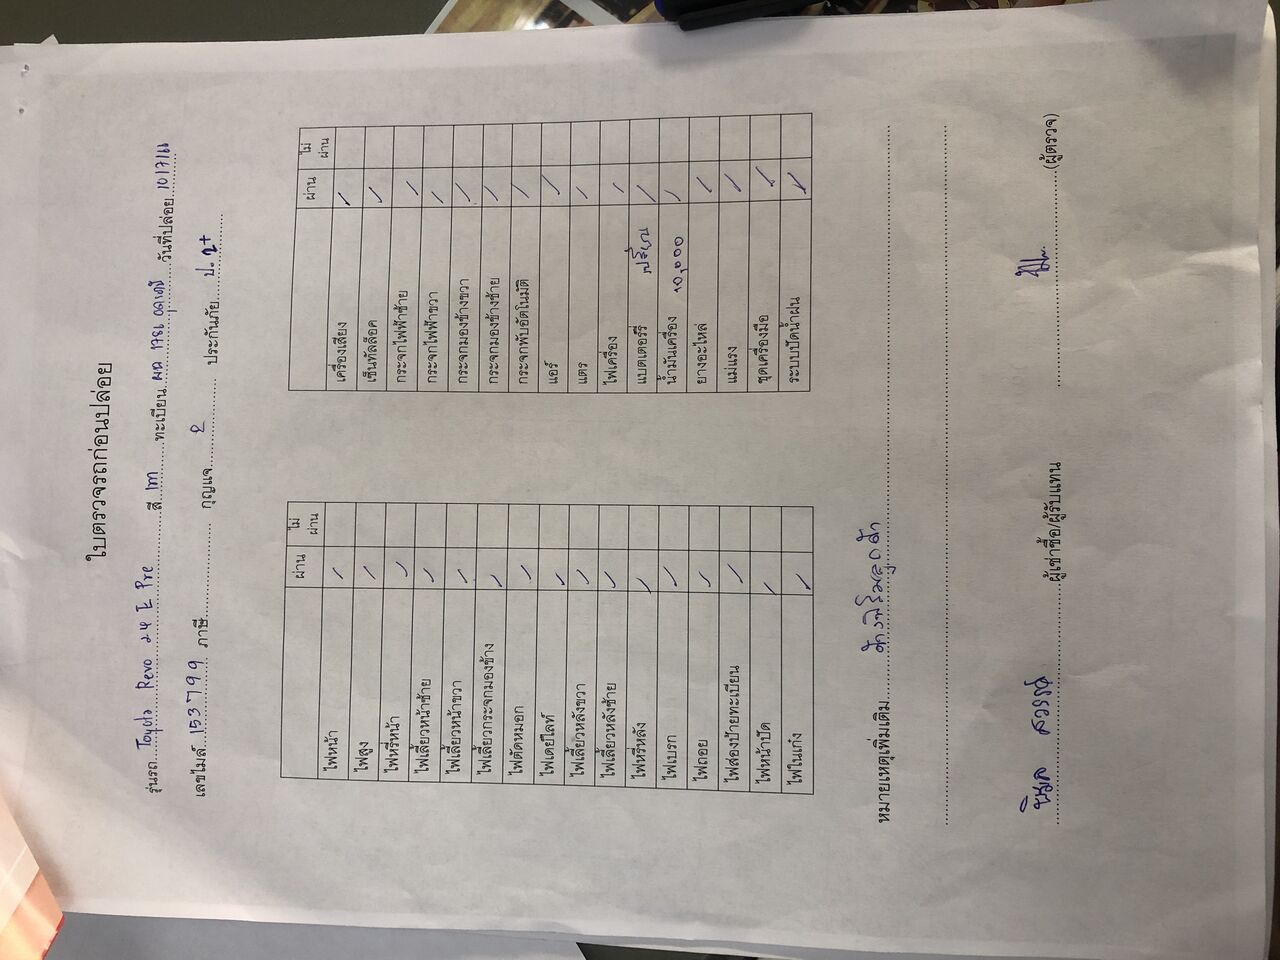 ใบตรวจรถก่อนปล่อย
รุ่นรถ Toyota Revo 24 E Pre สี เทา ทะเบียน ผฉ 1781 อุดรธานี วันที่ปล่อย 10/7/66
เลขไมล์ 153799 ภาษี กุญแจ 2 ประกันภัย ป. 2+
ผ่าน ไม่ผ่าน
ไฟหน้า /
ไฟสูง /
ไฟหรี่หน้า /
ไฟเลี้ยวหน้าซ้าย /
ไฟเลี้ยวหน้าขวา /
ไฟเลี้ยวกระจกมองข้าง /
ไฟตัดหมอก /
ไฟเดย์ไลท์ /
ไฟเลี้ยวหลังขวา /
ไฟเลี้ยวหลังซ้าย /
ไฟหรี่หลัง /
ไฟเบรก /
ไฟถอย /
ไฟส่องป้ายทะเบียน /
ไฟหน้าปัด /
ไฟในเก๋ง /
ผ่าน ไม่ผ่าน
เครื่องเสียง /
เซ็นทัลล็อค /
กระจกไฟฟ้าซ้าย /
กระจกไฟฟ้าขวา /
กระจกมองข้างขวา /
กระจกมองข้างซ้าย /
กระจกพับอัตโนมัติ /
แอร์ /
แตร /
ไฟเครื่อง /
แบตเตอรรี่ /
น้ำมันเครื่อง 10,000 /
ยางอะไหล่ /
แม่แรง /
ชุดเครื่องมือ /
ระบบปัดน้ำฝน /
หมายเหตุเพิ่มเติม
ผู้เช่าซื้อ/ผู้รับแทน (ผู้ตรวจ)